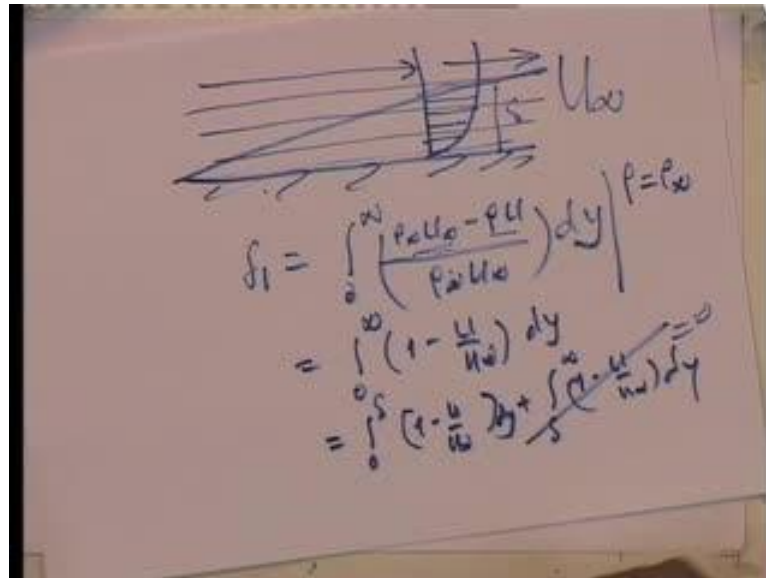 U∞
δ
δ₁ = ∫₀^∞ ((ρ∞U∞ - ρU) / (ρ∞U∞)) dy | ρ=ρ∞
= ∫₀^∞ (1 - u/u∞) dy
= ∫₀^δ (1 - u/u∞) dy + ∫_δ^∞ (1 - u/u∞) dy = 0